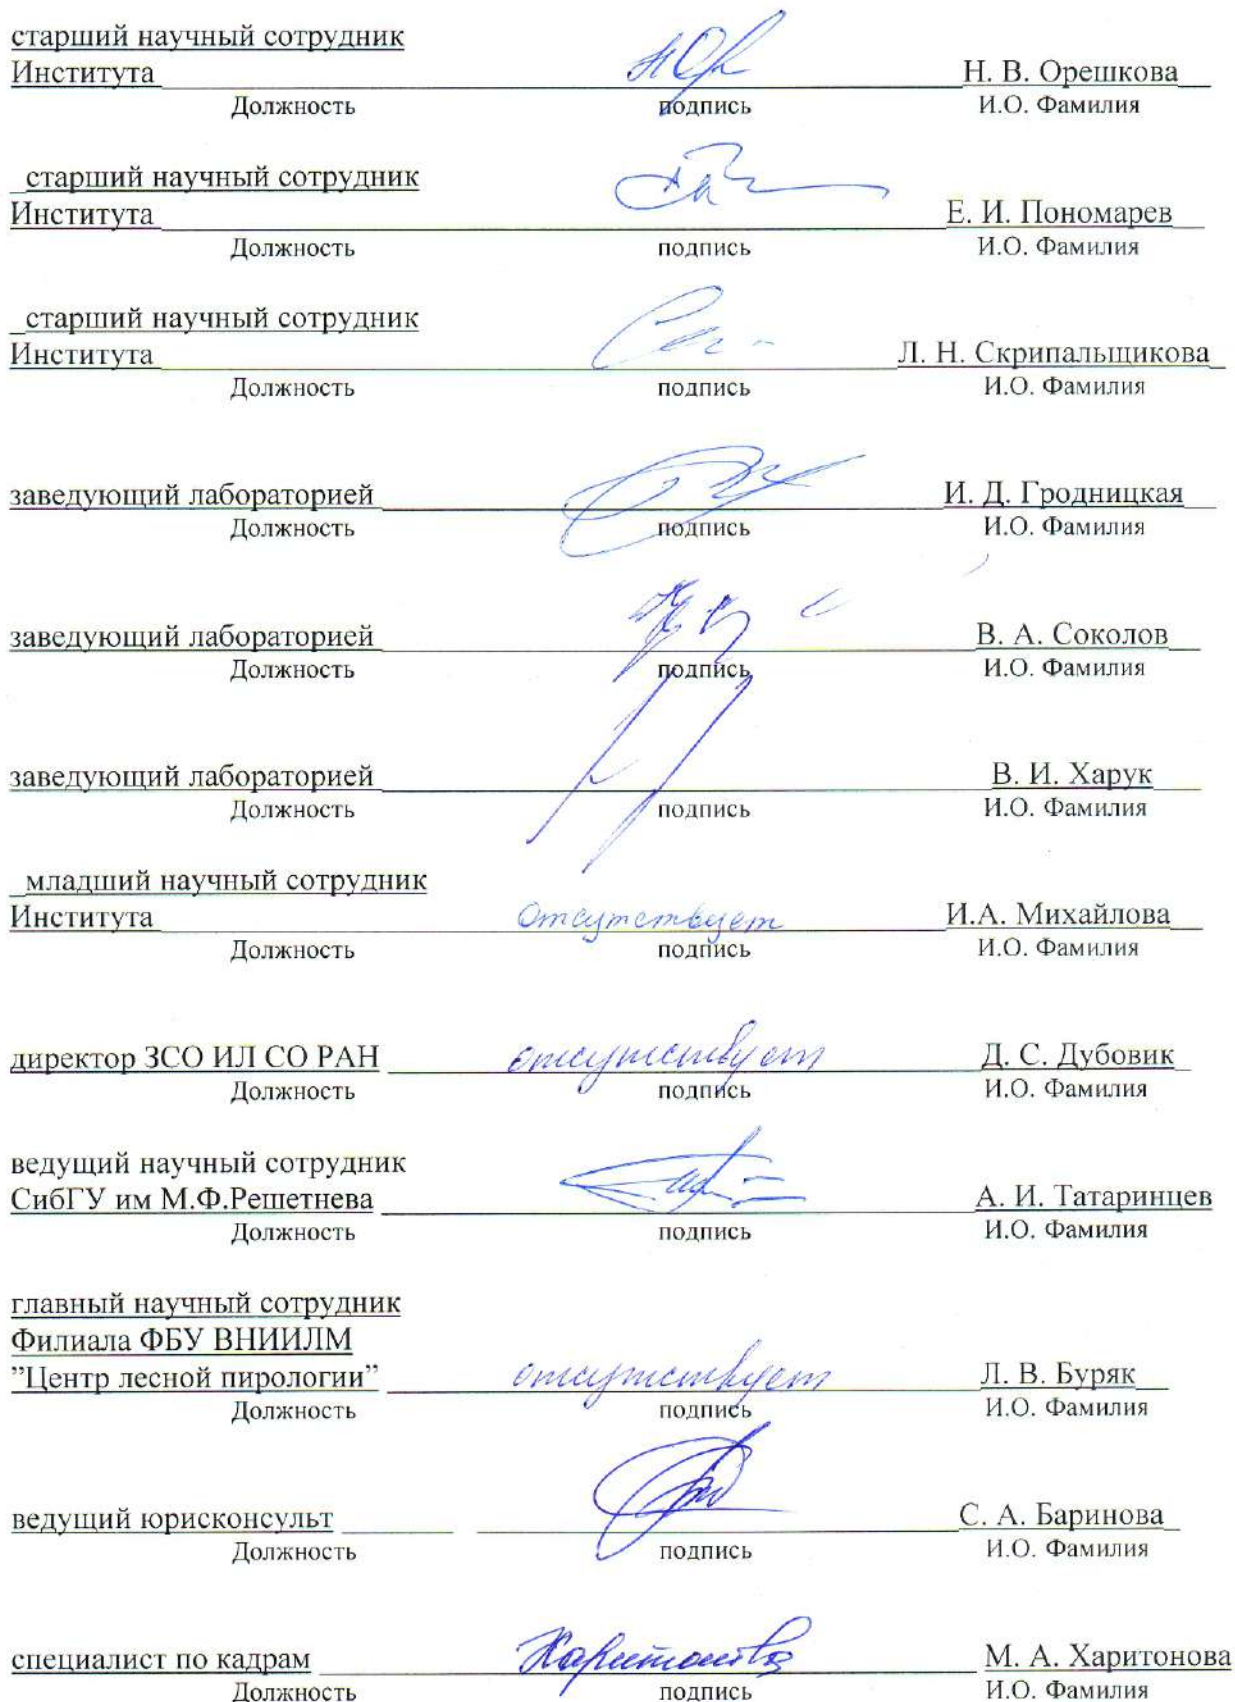 старший научный сотрудник
Института Н. В. Орешкова
Должность подпись И.О. Фамилия
старший научный сотрудник
Института Е. И. Пономарев
Должность подпись И.О. Фамилия
старший научный сотрудник
Института Л. Н. Скрипальщикова
Должность подпись И.О. Фамилия
заведующий лабораторией И. Д. Гродницкая
Должность подпись И.О. Фамилия
заведующий лабораторией В. А. Соколов
Должность подпись И.О. Фамилия
заведующий лабораторией В. И. Харук
Должность подпись И.О. Фамилия
младший научный сотрудник
Института отсутствует И.А. Михайлова
Должность подпись И.О. Фамилия
директор ЗСО ИЛ СО РАН отсутствует Д. С. Дубовик
Должность подпись И.О. Фамилия
ведущий научный сотрудник
СибГУ им М.Ф.Решетнева А. И. Татаринцев
Должность подпись И.О. Фамилия
главный научный сотрудник
Филиала ФБУ ВНИИЛМ
”Центр лесной пирологии” отсутствует Л. В. Буряк
Должность подпись И.О. Фамилия
ведущий юрисконсульт С. А. Баринова
Должность подпись И.О. Фамилия
специалист по кадрам М. А. Харитонова
Должность подпись И.О. Фамилия